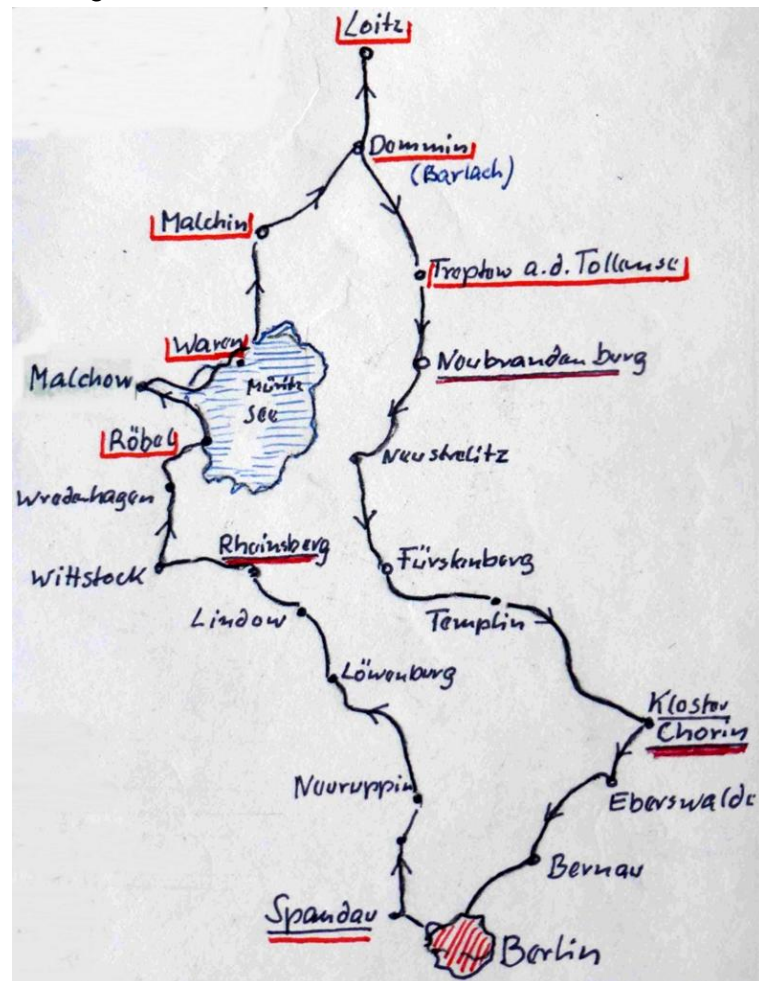 Loitz
Dommin
(Barlach)
Malchin
Treptow a.d. Tollense
Waren
Neubrandenburg
Malchow
Müritz
See
Röbel
Neustrelitz
Wredenhagen
Rheinsberg
Fürstenberg
Wittstock
Lindow
Templin
Löwenburg
Kloster
Chorin
Neuruppin
Eberswalde
Bernau
Spandau
Berlin